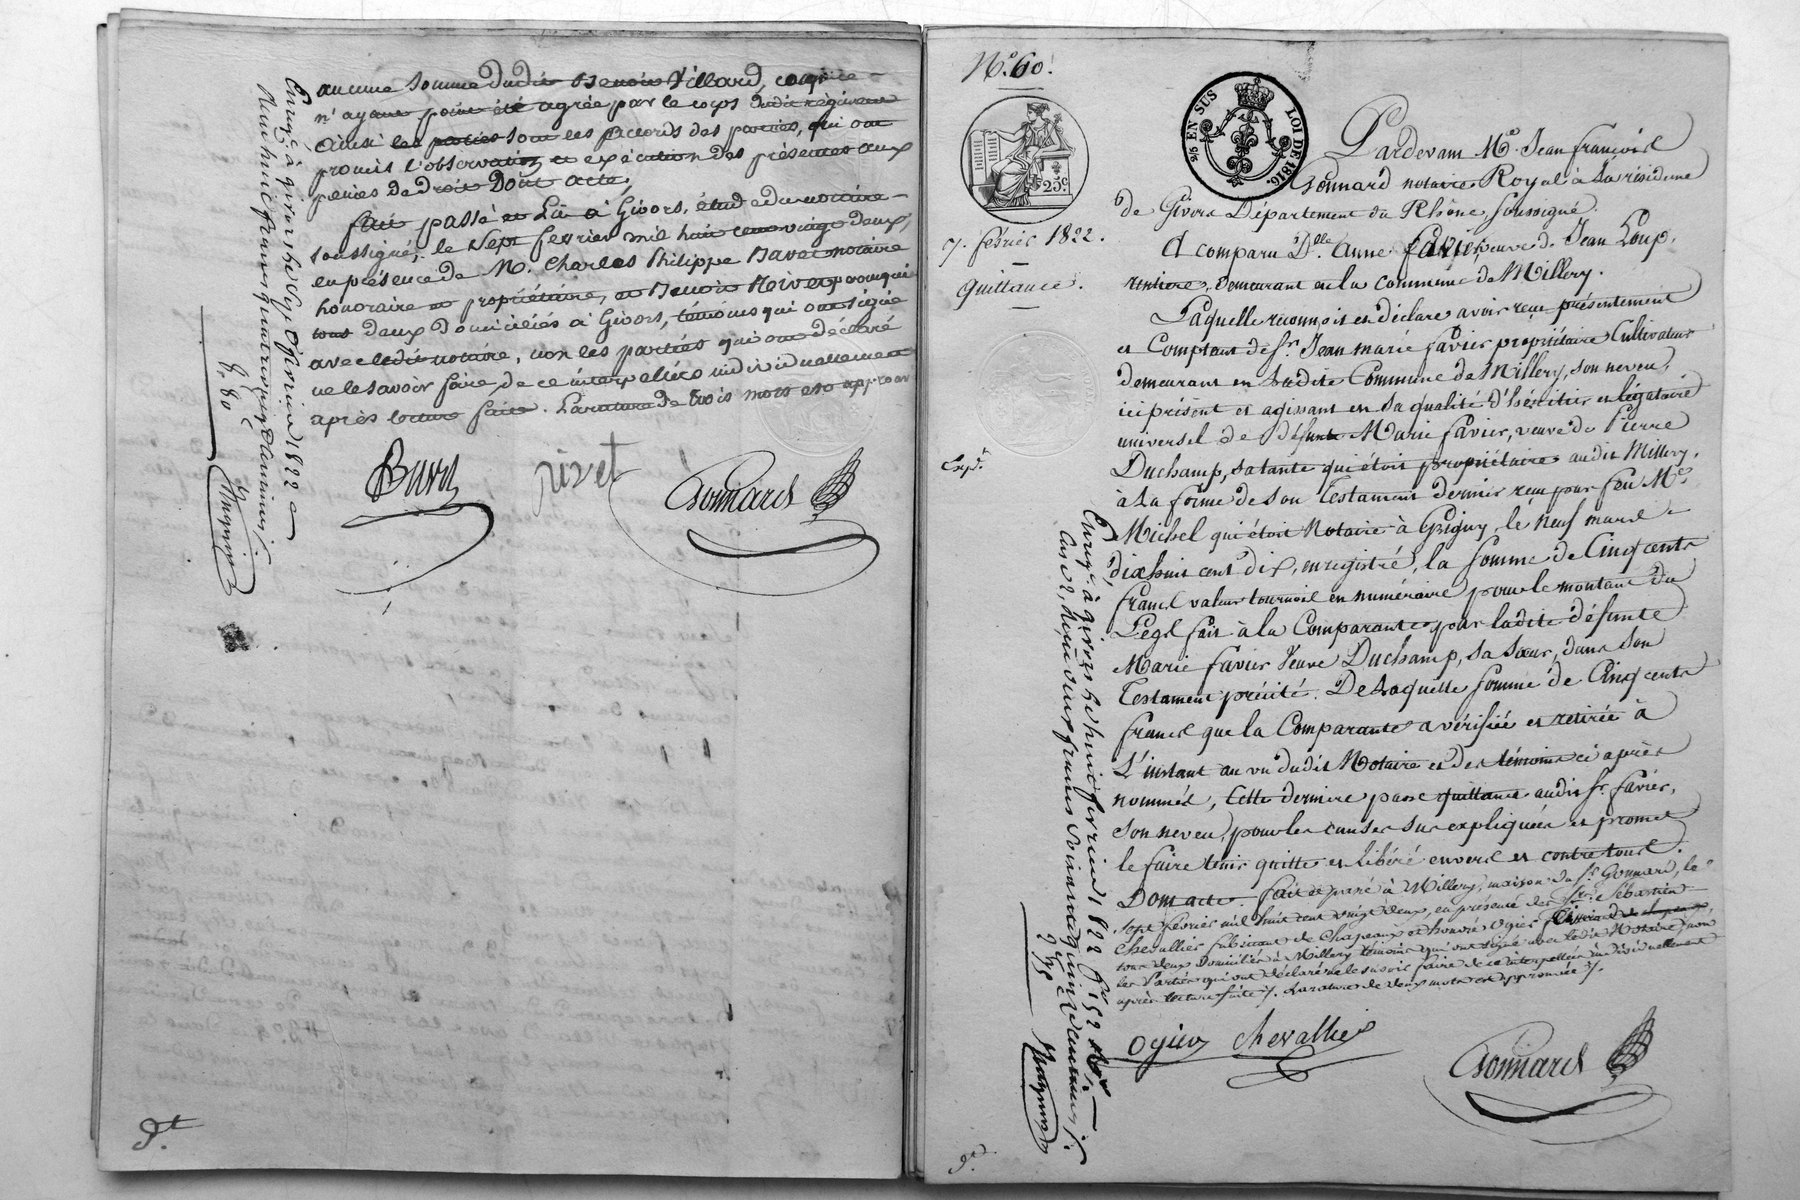 aucune somme dudit Benoit Villard, copie
n'ayant point été agréé par le corps dudit régiment
Ainsi les parties sont les accords des parties, qui ont
promis l'observation et exécution des présentes aux
peines de droit Dont acte,
fait passé et Lu à Givors, étude du notaire
soussigné, le sept fevrier mil huit cent vingt deux,
en présence de M. Charles Philippe Bavet notaire
honoraire et propriétaire, et Benoit Rivet
tous deux domiciliés à Givors, témoins qui ont signé
avec ledit notaire, non les parties qui ont déclaré
ne le savoir faire de ce interpellées individuellement
après lecture faite. La rature de trois mots est approuv
rivet
Gonnard
Enregé à givors le huit février 1822
N° 60.
2/5 EN SUS
LOI DE 1816.
25c
7. février 1822.
Quittance.
Expé.
Pardevant Me. Jean françois
Gonnard notaire Royal à la résidence
de Givors Département du Rhône, soussigné.
A comparu Dlle. anne favier, veuve de Jean Loup,
rentiere, demeurant en la commune de Millery.
Laquelle reconnoit et déclare avoir reçu présentement
et Comptant de Sr. Jean marie favier propriétaire Cultivateur
demeurant en ladite Commune de Millery, son neveu,
ici présent et agissant en sa qualité d'héritier et légataire
universel de défunte Marie favier, veuve de Pierre
Duchamp, sa tante qui étoit propriétaire audit Millery,
à la forme de son Testament dernier reçu par feu Me.
Michel qui étoit Notaire à Grigny, le neuf mars
dix huit cent dix, enregistré, la somme de Cinq cents
francs valeur tournois en numéraire pour le montant du
Legs fait à la Comparante par ladite défunte
Marie favier Veuve Duchamp, sa sœur, dans son
Testament précité. De laquelle somme de Cinq cents
francs que la Comparante a vérifiée et retirée à
L'instant au vu dudit Notaire et des témoins ci après
nommés, Cette dernière passe quittance audit Sr. favier,
son neveu, pour les causes sus expliquées et promet
le faire tenir quitte et libéré envers et contre tous.
Dont acte. fait et passé à Millery, maison du Sr. Gonnard, le
sept février mil huit cent vingt deux, en présence des Srs. Sébastien
Chevallier fabricant de chapeaux et honoré Ogier
tous deux Domiciliés à Millery témoins qui ont signé avec ledit Notaire, non
les Parties qui ont déclaré ne le savoir faire de ce interpellées individuellement
après lecture faite. La rature de deux mots est approuvée.
Ogier Chevallier
Gonnard
Enregé à givors le huit fevrier 1822 fo 152